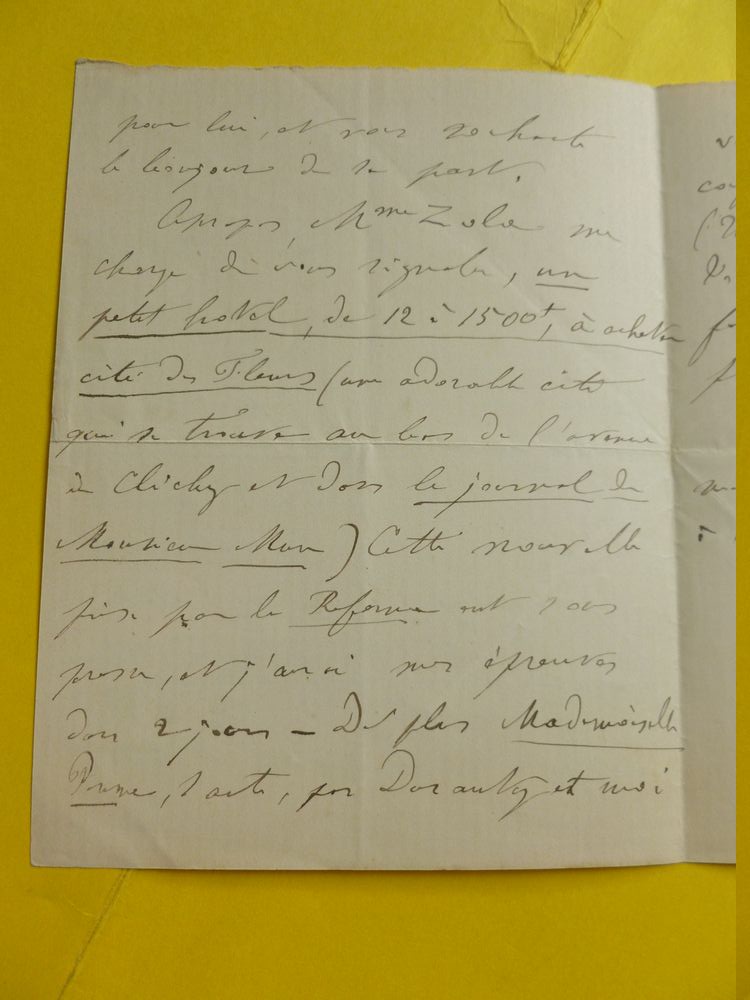 pour lui, et vous souhaite
le bonjour de sa part.
Apropos, Mme Zola me
charge de vous signaler, un
petit hôtel, de 12 à 1500f, à acheter
cité des Fleurs (une adorable cité
qui se trouve au bas de l'avenue
de Clichy et dans le journal de
Monsieur Mure) Cette nouvelle
prise par la Reforme est sous
presse, et j'aurai mes épreuves
dans 2 jours — De plus Mademoiselle
Pomme, 1 acte, par Duranty et moi
v
co
f
f
à